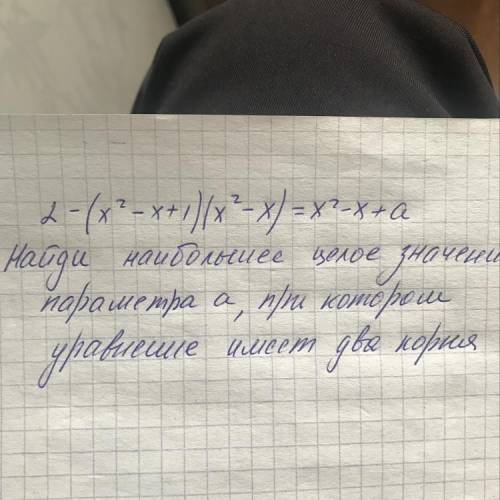 2-(x²-x+1)(x²-x)=x²-x+a
Найди наибольшее целое значени
параметра a, при котором
уравнение имеет два корня